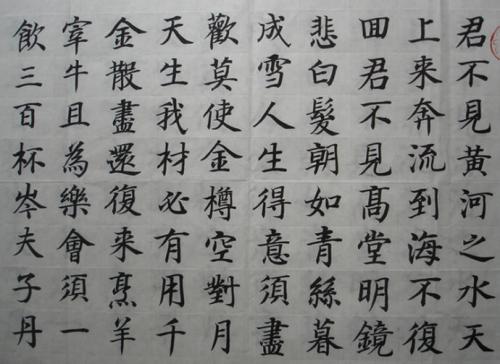 君不見黃河之水天
上来奔流到海不復
囬君不見髙堂明鏡
悲白髮朝如青絲暮
成雪人生得意須盡
歡莫使金樽空對月
天生我材必有用千
金散盡還復来烹羊
宰牛且為樂會須一
飲三百杯岑夫子丹